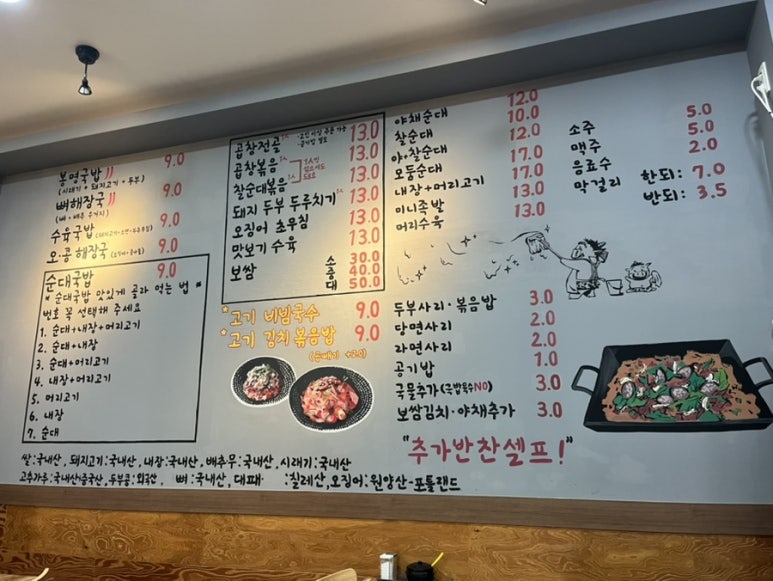 봉명국밥 9.0
(시래기 + 돼지고기 + 두부)
뼈해장국 9.0
(뼈 + 배추 우거지)
수육국밥 9.0
오·콩 해장국 9.0
순대국밥 9.0
" 순대국밥 맛있게 골라 먹는 법 "
번호 꼭 선택해 주세요
1. 순대+내장+머리고기
2. 순대+내장
3. 순대+머리고기
4. 내장+머리고기
5. 머리고기
6. 내장
7. 순대
곱창전골 13.0
곱창볶음 13.0
찰순대볶음 13.0
돼지 두부 두루치기 13.0
오징어 초무침 13.0
맛보기 수육 13.0
보쌈 소 30.0
중 40.0
대 50.0
*고기 비빔국수 9.0
*고기 김치 볶음밥 9.0
야채순대 12.0
찰순대 10.0
야+찰순대 12.0
모둠순대 17.0
내장+머리고기 17.0
미니족발 17.0
머리수육 13.0
소주 5.0
맥주 5.0
음료수 2.0
막걸리 한되: 7.0
반되: 3.5
두부사리·볶음밥 3.0
당면사리 2.0
라면사리 2.0
공기밥 1.0
국물추가(국밥육수NO) 3.0
보쌈김치·야채추가 3.0
"추가반찬셀프!"
쌀:국내산, 돼지고기:국내산, 내장:국내산, 배추무:국내산, 시래기:국내산
고추가루:국내산/중국산, 두부콩:외국산, 뼈:국내산, 대패 :칠레산, 오징어:원양산-포틀랜드